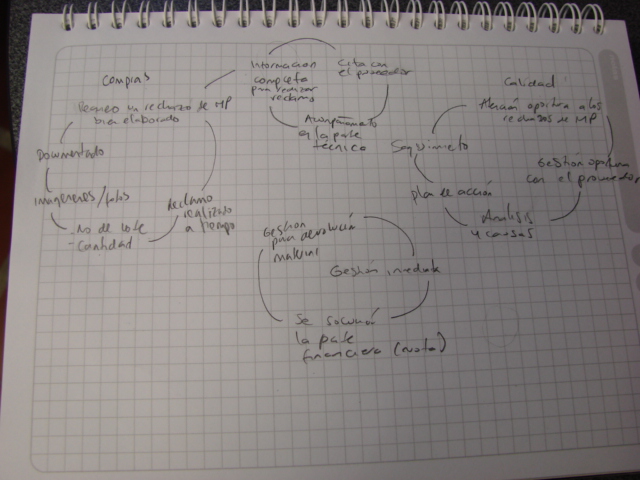 Compras
Reporte un rechazo de MP
bien elaborado
Documentado
Imagenenes/fotos
- No de lote
- Cantidad
Reclamo
realizado
a tiempo
Informacion
completa
para realizar
reclamo
Cita con
el proveedor
Acompañamiento
a la parte
tecnico
Calidad
Atención oportuna a los
rechazos de MP
Gestión oportuna
con el proveedor
Analisis
y causas
plan de acción
Seguimiento
Gestion
para devolución
material
Gestión inmediata
Se
la parte
financiera (nota)